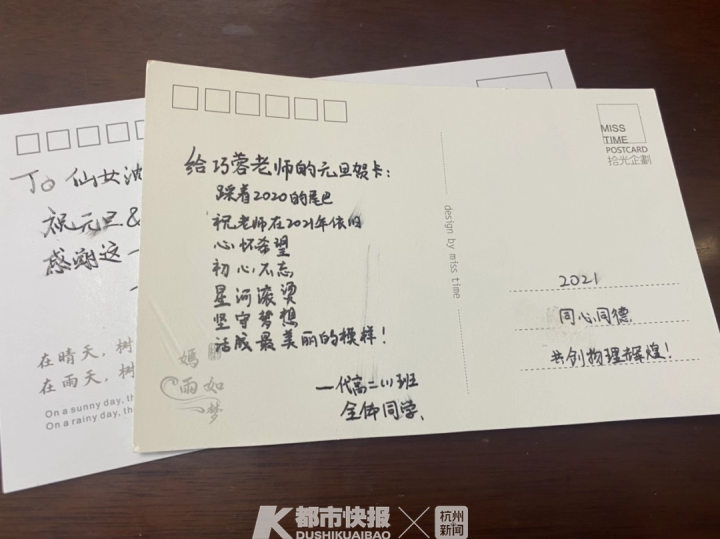 MISS
TIME
POSTCARD
拾光企劃
给巧蓉老师的元旦贺卡：
踩着2020的尾巴
祝老师在2021年依旧
心怀希望
初心不忘
星河滚烫
坚守梦想
活成最美丽的模样！
一代高二(1)班
全体同学
design by miss time
2021
同心同德
共创物理辉煌！
嫣
雨如
梦
To 仙女沈
祝元旦&
感谢这一
在晴天，树
在雨天，树
On a sunny day, th
On a rainy day, th
都市快报
DUSHIKUAIBAO
杭州
新闻